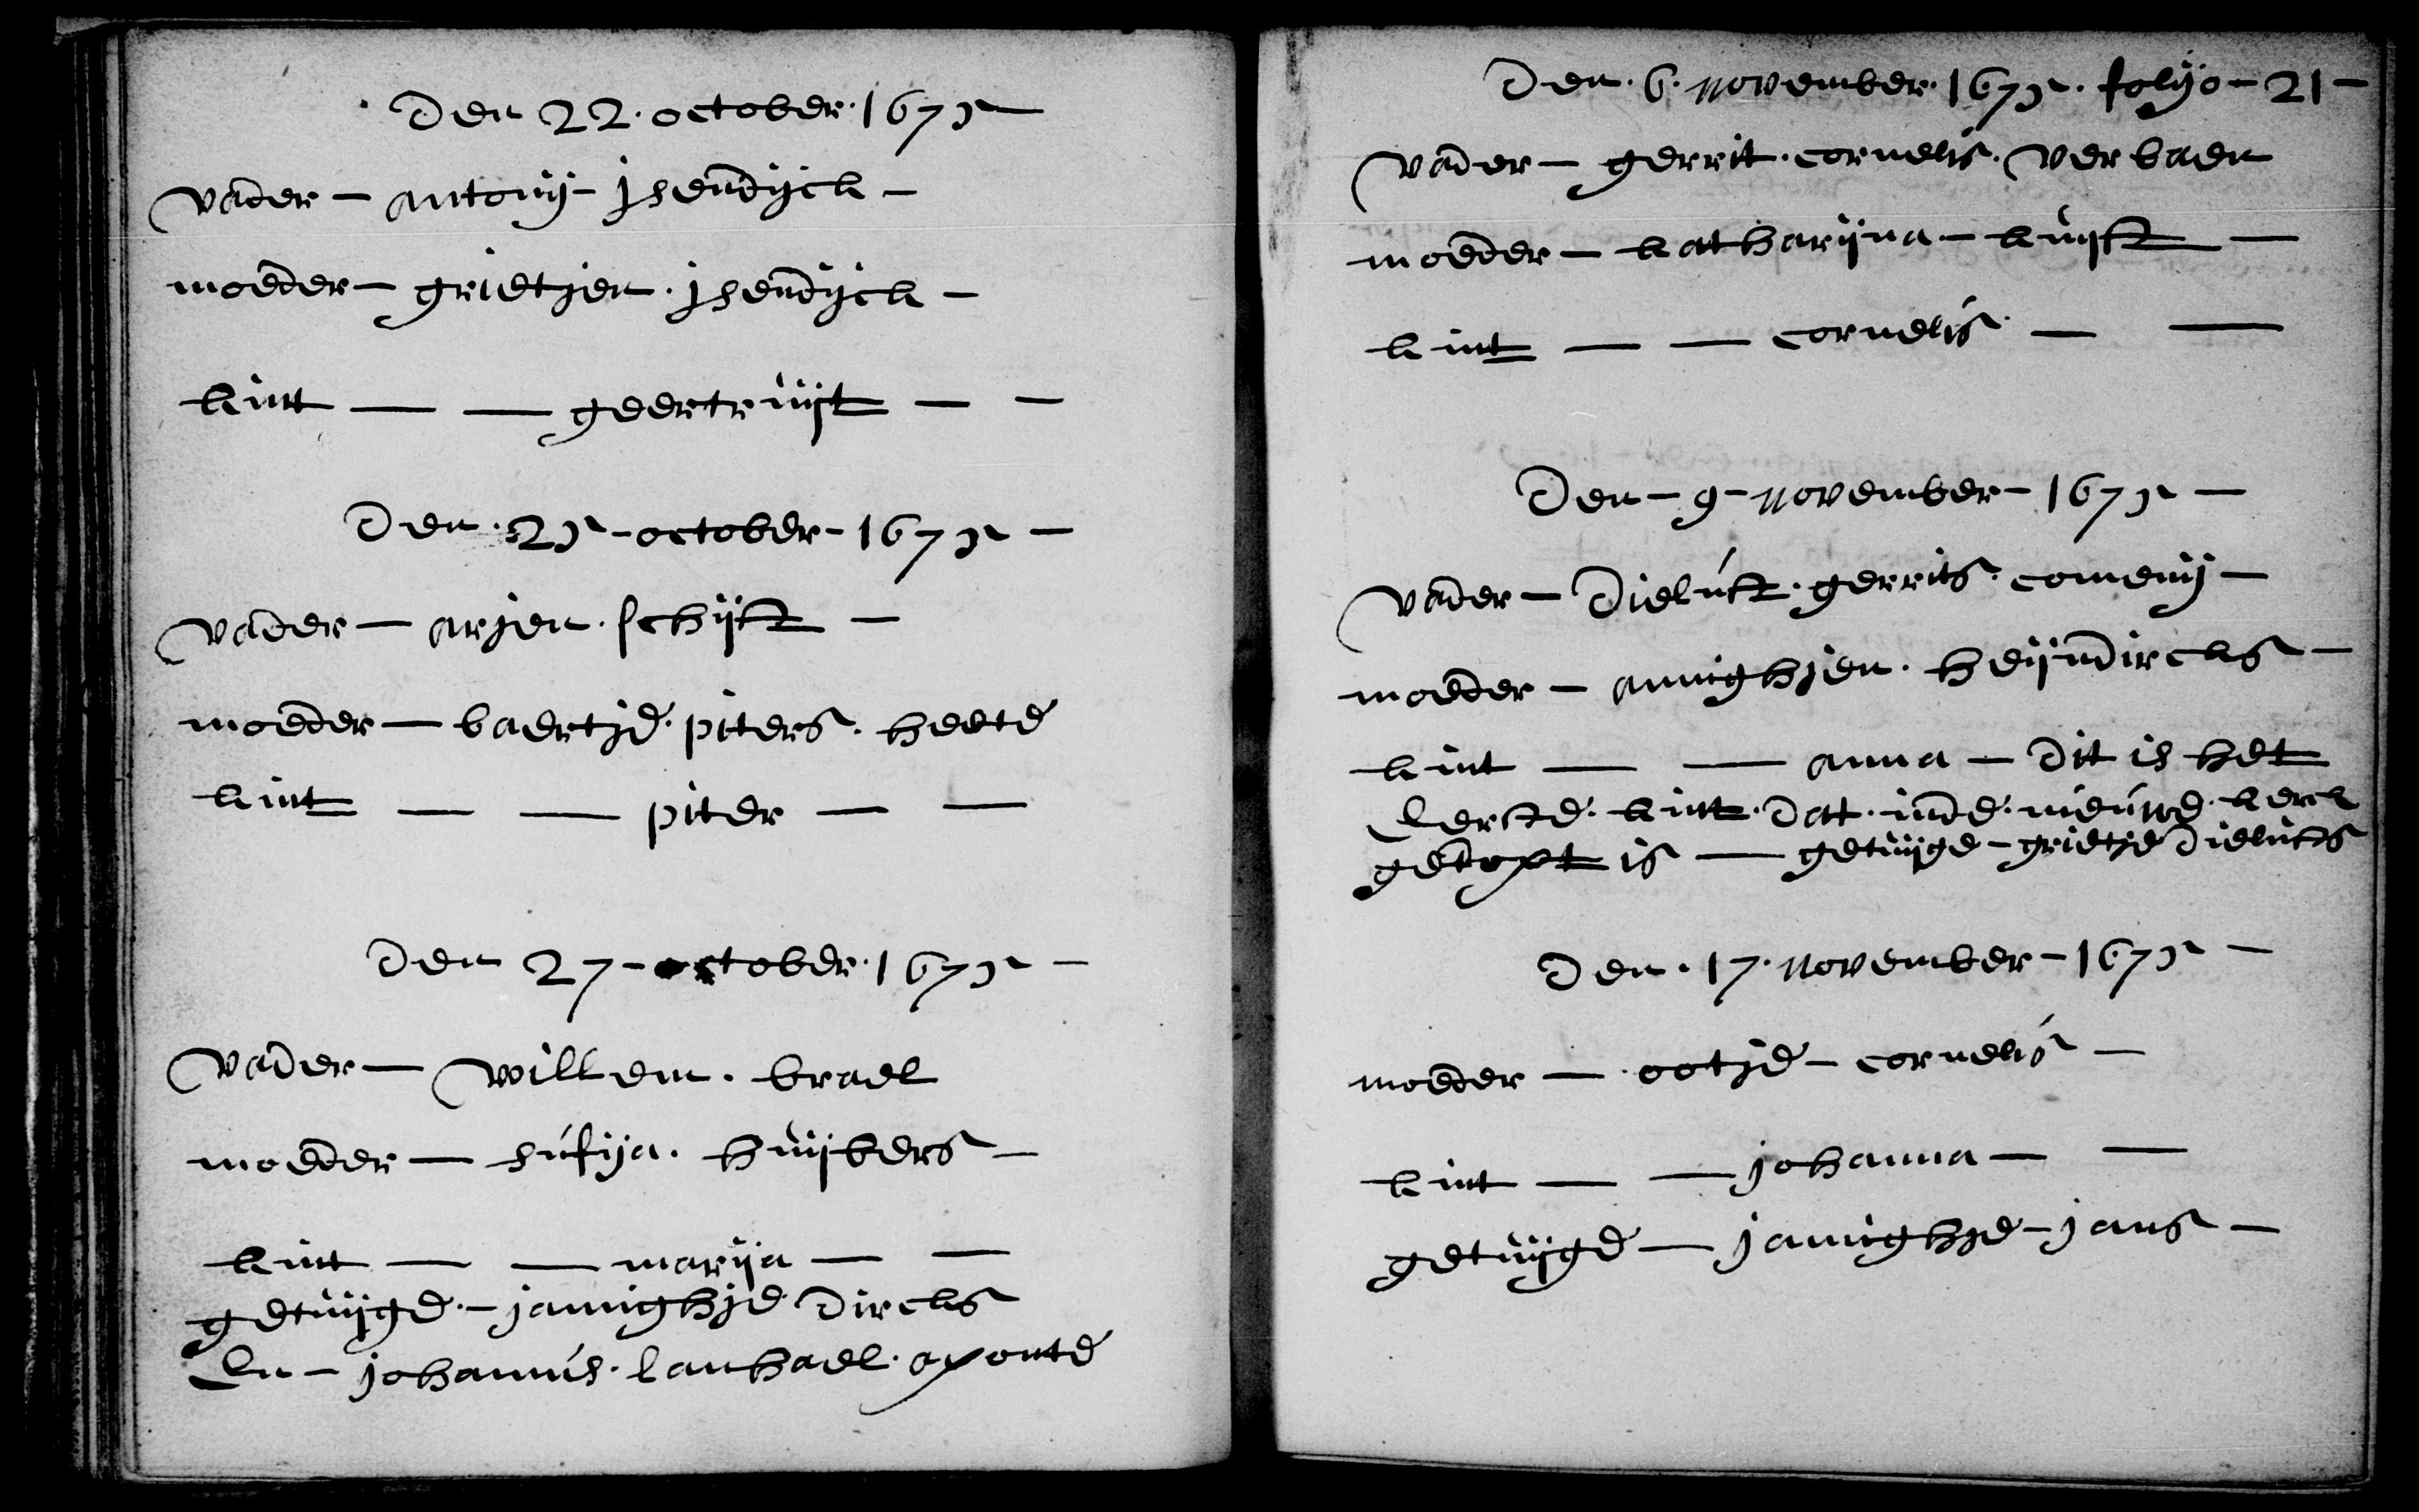 Den 22 · october · 1675 —
vader — antonij — jsendijck —
moeder — grietjen · jsendijck —
kint — — geertruijt — —
Den · 25 - october - 1675 —
vader — arjen · schijft —
moeder — baertje · piters · heete
kint — — piter — —
Den 27 - october · 1675 —
vader — willem · brael
moeder — sufija · huijbers —
kint — — marija — —
getuijge · — jannighje Dircks
En — johannis · lanhael · aponte
Den · 6 · november · 1675 · folijo - 21 —
vader — gerrit · cornelis · ver baen
moeder — katharijna — kuijst —
kint — — cornelis — —
Den — 9 — november — 1675 —
vader — Dieluft · gerrits · comenij —
moeder — annighjen · heijndircks —
kint — — anna — Dit is het
Eerste · kint · Dat · inde · nieuwe · kerk
gedoopt is — getuijge — grietje Dielufts
Den · 17 · november — 1675 —
moeder — ootje — cornelis —
kint — — johanna — —
getuijge — jannighje — jans —